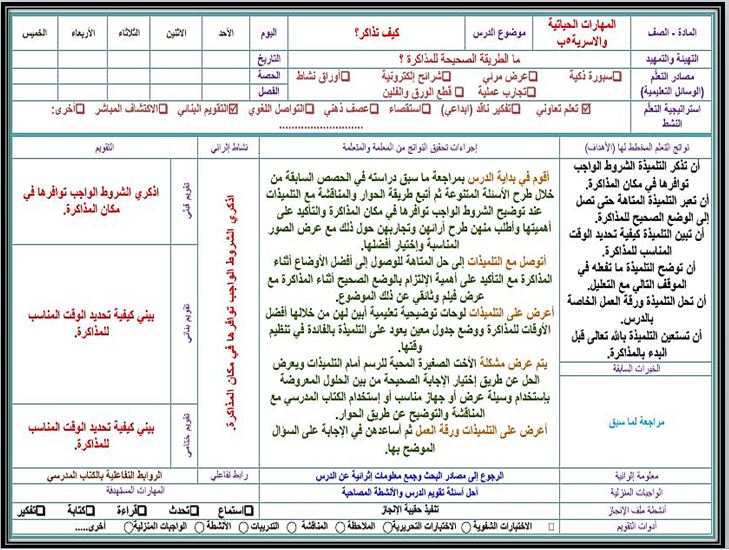 المادة - الصف
المهارات الحياتية والاسرية٥ب
موضوع الدرس
كيف تذاكر؟
اليوم
الأحد
الاثنين
الثلاثاء
الأربعاء
الخميس
التهيئة والتمهيد
ما الطريقة الصحيحة للمذاكرة ؟
التاريخ
مصادر التعلم
(الوسائل التعليمية)
□سبورة ذكية □عرض مرئي □شرائح إلكترونية □أوراق نشاط
□تجارب عملية □ قطع الورق والفلين
الحصة
الفصل
استراتيجية التعلم النشط
☑ تعلم تعاوني □تفكير ناقد (ابداعي) □استقصاء □عصف ذهني □التواصل اللغوي ☑التقويم البنائي □الاكتشاف المباشر □أخرى:
............................
نواتج التعلم المخطط لها (الأهداف)
إجراءات تحقيق النواتج من المعلمة والمتعلمة
نشاط إثرائي
التقويم
أن تذكر التلميذة الشروط الواجب
توافرها في مكان المذاكرة.
أن تعبر التلميذة المتاهة حتى تصل
إلى الوضع الصحيح للمذاكرة.
أن تبين التلميذة كيفية تحديد الوقت
المناسب للمذاكرة.
أن توضح التلميذة ما تفعله في
الموقف التالي مع التعليل.
أن تحل التلميذة ورقة العمل الخاصة
بالدرس.
أن تستعين التلميذة بالله تعالى قبل
البدء بالمذاكرة.
الخبرات السابقة
مراجعة لما سبق
أقوم في بداية الدرس بمراجعة ما سبق دراسته في الحصص السابقة من
خلال طرح الأسئلة المتنوعة ثم أتبع طريقة الحوار والمناقشة مع التلميذات
عند توضيح الشروط الواجب توافرها في مكان المذاكرة والتأكيد على
أهميتها وأطلب منهن طرح آرائهن وتجاربهن حول ذلك مع عرض الصور
المناسبة وإختيار أفضلها.
أتوصل مع التلميذات إلى حل المتاهة للوصول إلى أفضل الأوضاع أثناء
المذاكرة مع التأكيد على أهمية الإلتزام بالوضع الصحيح أثناء المذاكرة مع
عرض فيلم وثائقي عن ذلك الموضوع.
أعرض على التلميذات لوحات توضيحية تعليمية أبين لهن من خلالها أفضل
الأوقات للمذاكرة ووضع جدول معين يعود على التلميذة بالفائدة في تنظيم
وقتها.
يتم عرض مشكلة الأخت الصغيرة المحبة للرسم أمام التلميذات ويعرض
الحل عن طريق إختيار الإجابة الصحيحة من بين الحلول المعروضة
بإستخدام وسيلة عرض أو جهاز مناسب أو إستخدام الكتاب المدرسي مع
المناقشة والتوضيح عن طريق الحوار.
أعرض على التلميذات ورقة العمل ثم أساعدهن في الإجابة على السؤال
الموضح بها.
اذكري الشروط الواجب توافرها في مكان المذاكرة.
تقويم قبلي
اذكري الشروط الواجب توافرها في
مكان المذاكرة.
تقويم بنائي
بيني كيفية تحديد الوقت المناسب
للمذاكرة.
تقويم ختامي
بيني كيفية تحديد الوقت المناسب
للمذاكرة.
معلومة إثرائية
الرجوع إلى مصادر البحث وجمع معلومات إثرائية عن الدرس
رابط تفاعلي
الروابط التفاعلية بالكتاب المدرسي
الواجبات المنزلية
أحل أسئلة تقويم الدرس والأنشطة المصاحبة
المهارات المستهدفة
أنشطة ملف الإنجاز
تنفيذ حقيبة الإنجاز
□استماع □تحدث □قراءة □كتابة □تفكير
أدوات التقويم
□ الاختبارات الشفوية ○ الاختبارات التحريرية○ الملاحظة ○ المناقشة ○ التدريبات ○ الأنشطة ○ الواجبات المنزلية○ أخرى.....